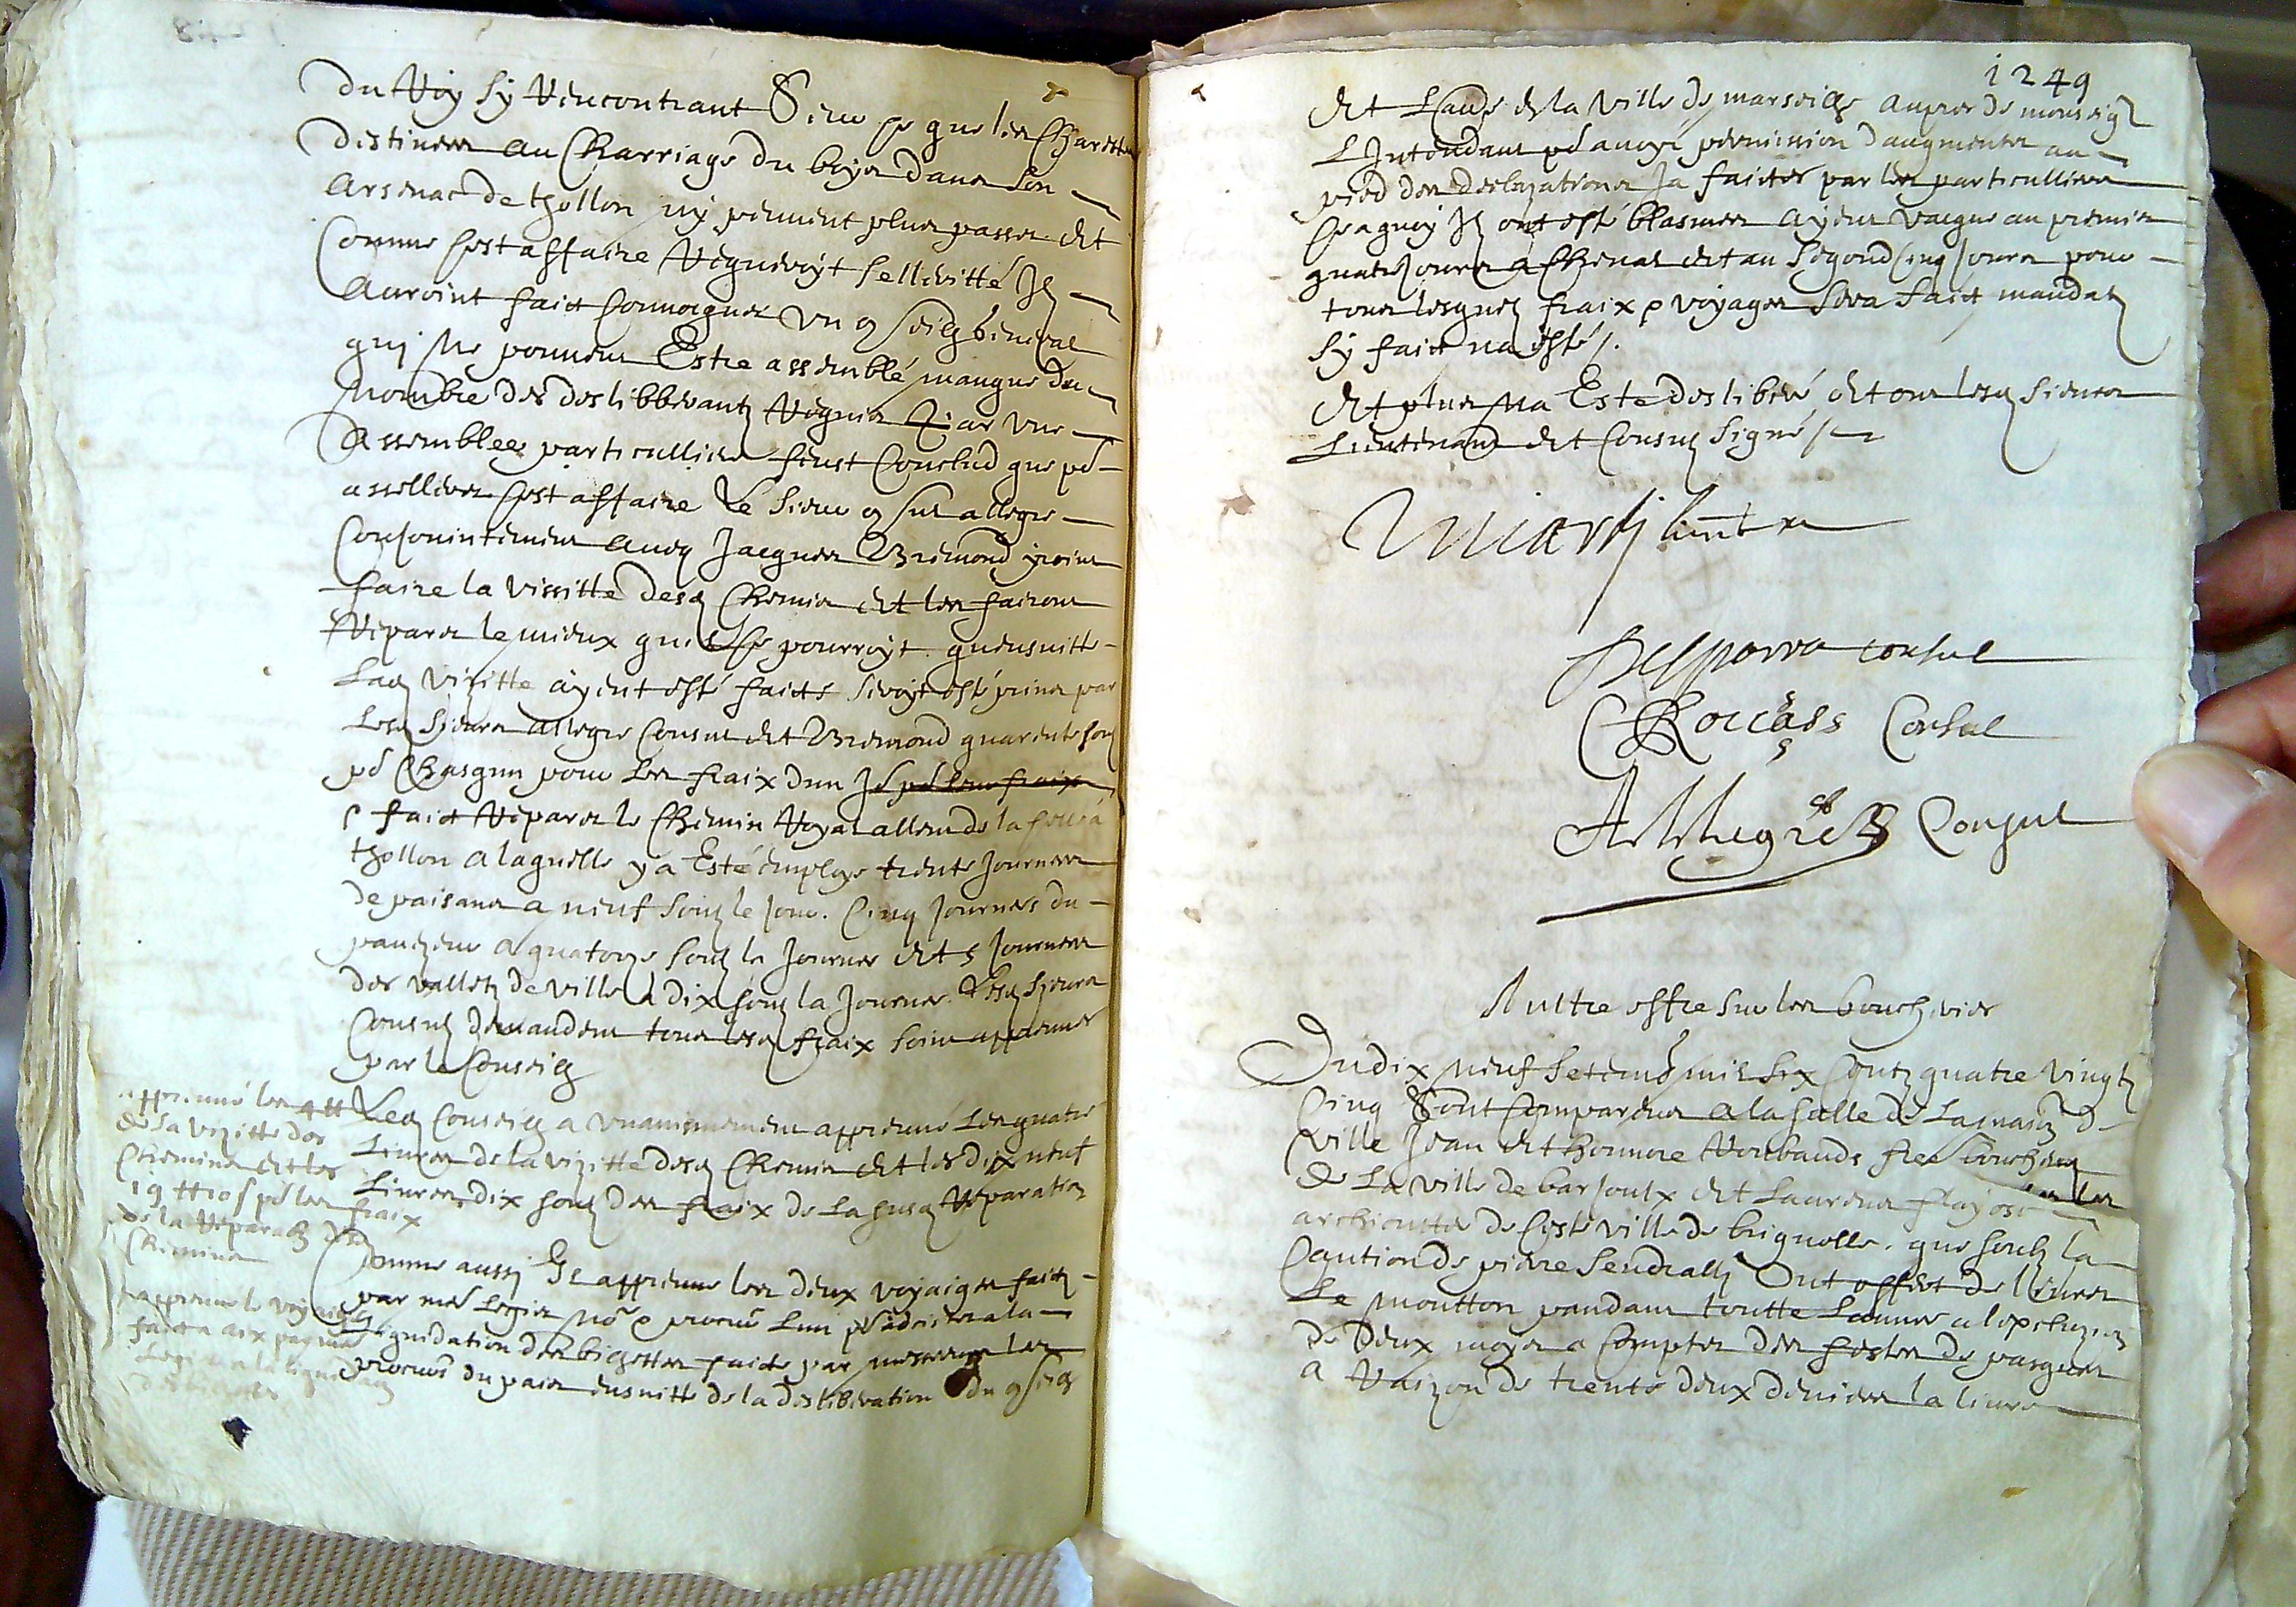 du Roy sy rencontrant Sieur ce que les Charettes
distinees au Charriage du boys dans son
Arsenac de thollon ny peuvent plus passer et
Comme cest affaire requeroyt selleritté Ilz
auroint faict convoquer un conseilh general
qui ne pouvent Estre assemblé manque du
Nombre des deslibberants requis Car une
Assemblee particulliere feust Conclud que pour
asselleren cest affaire Le Sieur consul allegre
Conjointement avecq Jacques Bremond yroint
faire la vissitte desd Chemins et les fairont
Reparer le mieux quil se pourroyt quensuitte
Lad vizitte ayent esté faicte seroyt esté prins par
Lesd sieurs allegre Consul et Bremond quarente soulz
pour Chasqun pour les fraix dun Jour
et faict reparer le Chemin Royal allent de la
thollon a laquelle y a Esté employe trente Journees
de paisans a neuf soulz le jour. Cinq Journees du
a quatorze soulz la Journee et 5 Journees
des valletz de ville a dix soulz la Journee. Lesd sieurs
Consulz demandent tous lesd fraix soint appreuves
par le Conseilh
appreuvé les 4 ₶
de la vizitte des
Chemins et les
19 ₶ 10 s pour les fraix
de la reparation desd
Chemins
Led Conseilh a unanimement appreuvé Les quatre
Livres de la vizitte desd Chemins et les dix neuf
Livres dix soulz des fraix de la susd Reparation
appreuve le voyage
faict a aix par me
Legier a la liquidation
Comme aussy Il appreuve les deux voyaiges faictz
par me Legier no.re et procur Lun pour a la
liquidation des faicte par messieurs les
procur du pais ensuitte de la deslibération du conseilh
1249
et Lautre de la Ville de marseilhe aupres de monseigr
L Intendant pour avoyr permission daugmenter au
pied des declarations Ja faictes par les particulliers
Ce a quoy Ilz ont esté blasmes ayent vacque au premier
quatre Jours a Cheval et au segond Cinq Jours pour
tous lesquelz fraix e voyages sera faict mandat
sy faict na esté /.
Et plus na Esté deslibéré et ont lesd sieurs
Lieutenant et Consulz Signé /
consul
Roccass Consul
Allegre Consul
Aultre offre sur les boucheries
Du dix neuf setembre mil six Centz quatre vingtz
Cinq Sont Comparus a la salle de La maison de
ville Jean et honnore Rouband freres bouchers
de La ville de barjoulx et Laurens flayosc
de Ceste ville de brignolle. que soulz la
Caution de pierre Ont offert de livrer
Le moutton pandant toutte Lannee a lexclusion
de Deux moys a Compter des festes de pasques
a Raizon de trente deux deniers la livre